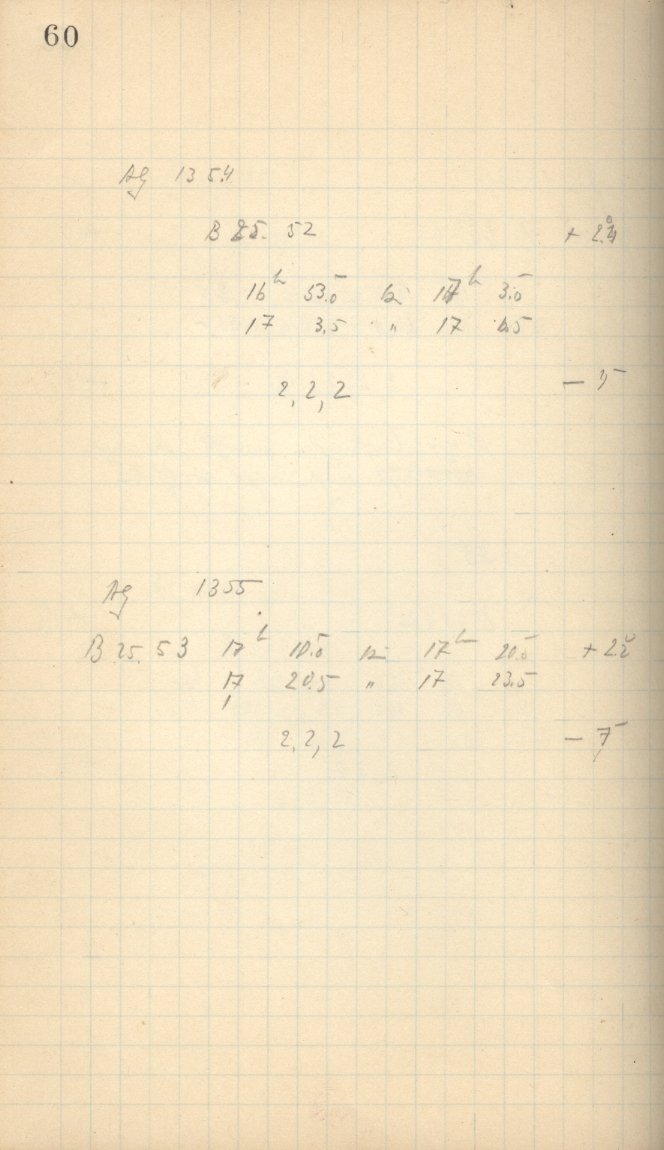 60
Ag 1354
B 25. 52 + 2.4
16h 53.0 bis 17h 3.0
17 3.5 " 17 6.5
2, 2, 2
Ag 1355
B 25. 53 17h 10.0 bis 17h 20.0 + 2.2
17 20.5 " 17 23.5
2, 2, 2 - 7